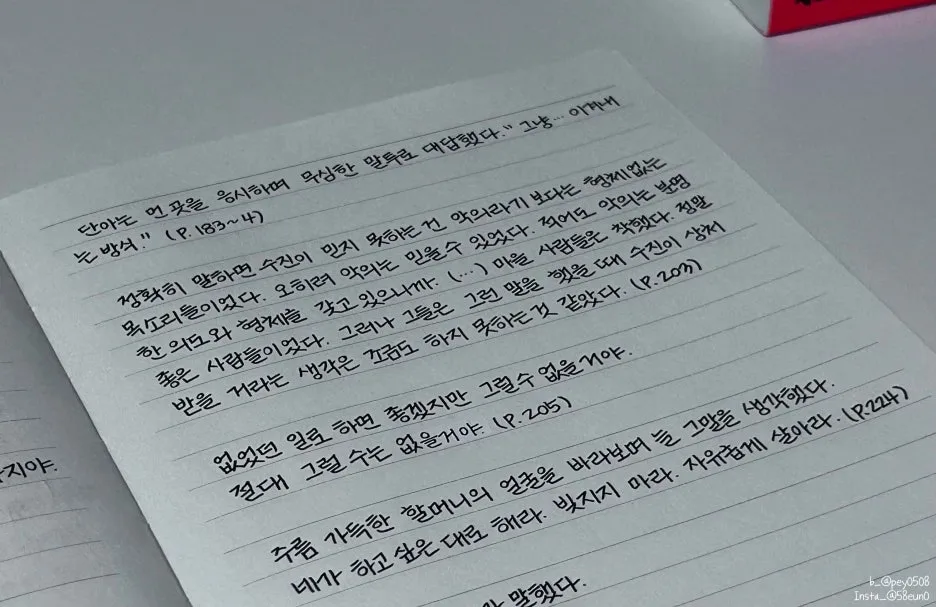 단아는 먼 곳을 응시하며 무심한 말투로 대답했다. "그냥… 아껴내
는 방식." (P.183~4)
정확히 말하면 수진이 믿지 못하는 건 악의라기 보다는 형체없는
목소리들이었다. 오히려 악의는 믿을 수 있었다. 적어도 악의는 분명
한 의도와 형체를 갖고 있으니까. (...) 마을 사람들은 착했다. 정말
좋은 사람들이었다. 그러나 그들은 그런 말을 했을 때 수진이 상처
받을 거라는 생각은 조금도 하지 못하는 것 같았다. (P.203)
없었던 일로 하면 좋겠지만 그럴 수 없을거야.
절대 그럴 수는 없을거야. (P.205)
주름 가득한 할머니의 얼굴을 바라보며 늘 그 말을 생각했다.
네가 하고 싶은 대로 해라. 빚지지 마라. 자유롭게 살아라. (P.224)
말했다.
지야.
b_@pey0508
Insta_@58eun0